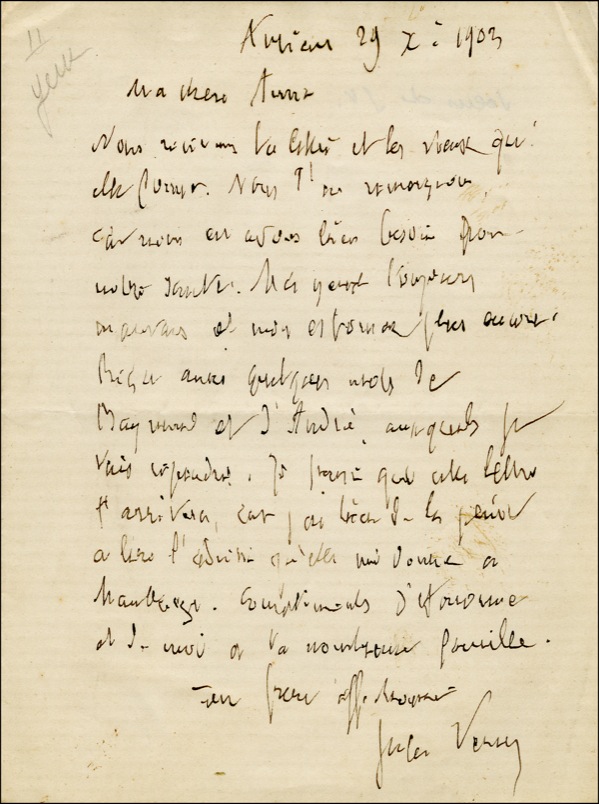 Amiens 29 Xe 1903
Ma chère Anna
Nous recevons ta lettre et les vœux qu'
elle forme. Nous t'en remercions,
car nous en avons bien besoin pour
notre santé. Mes yeux toujours
mauvais et mon estomac plus encore.
Reçu aussi quelques mots de
Raymond et d'André, auxquels je
vais répondre. Je pense que cette lettre
t'arrivera, car j'ai bien de la peine
à lire l'adresse qu'elle me donne à
Maubeuge. Compliments d'Honorine
et de moi à ta nombreuse famille.
Ton frère affectionné
Jules Verne